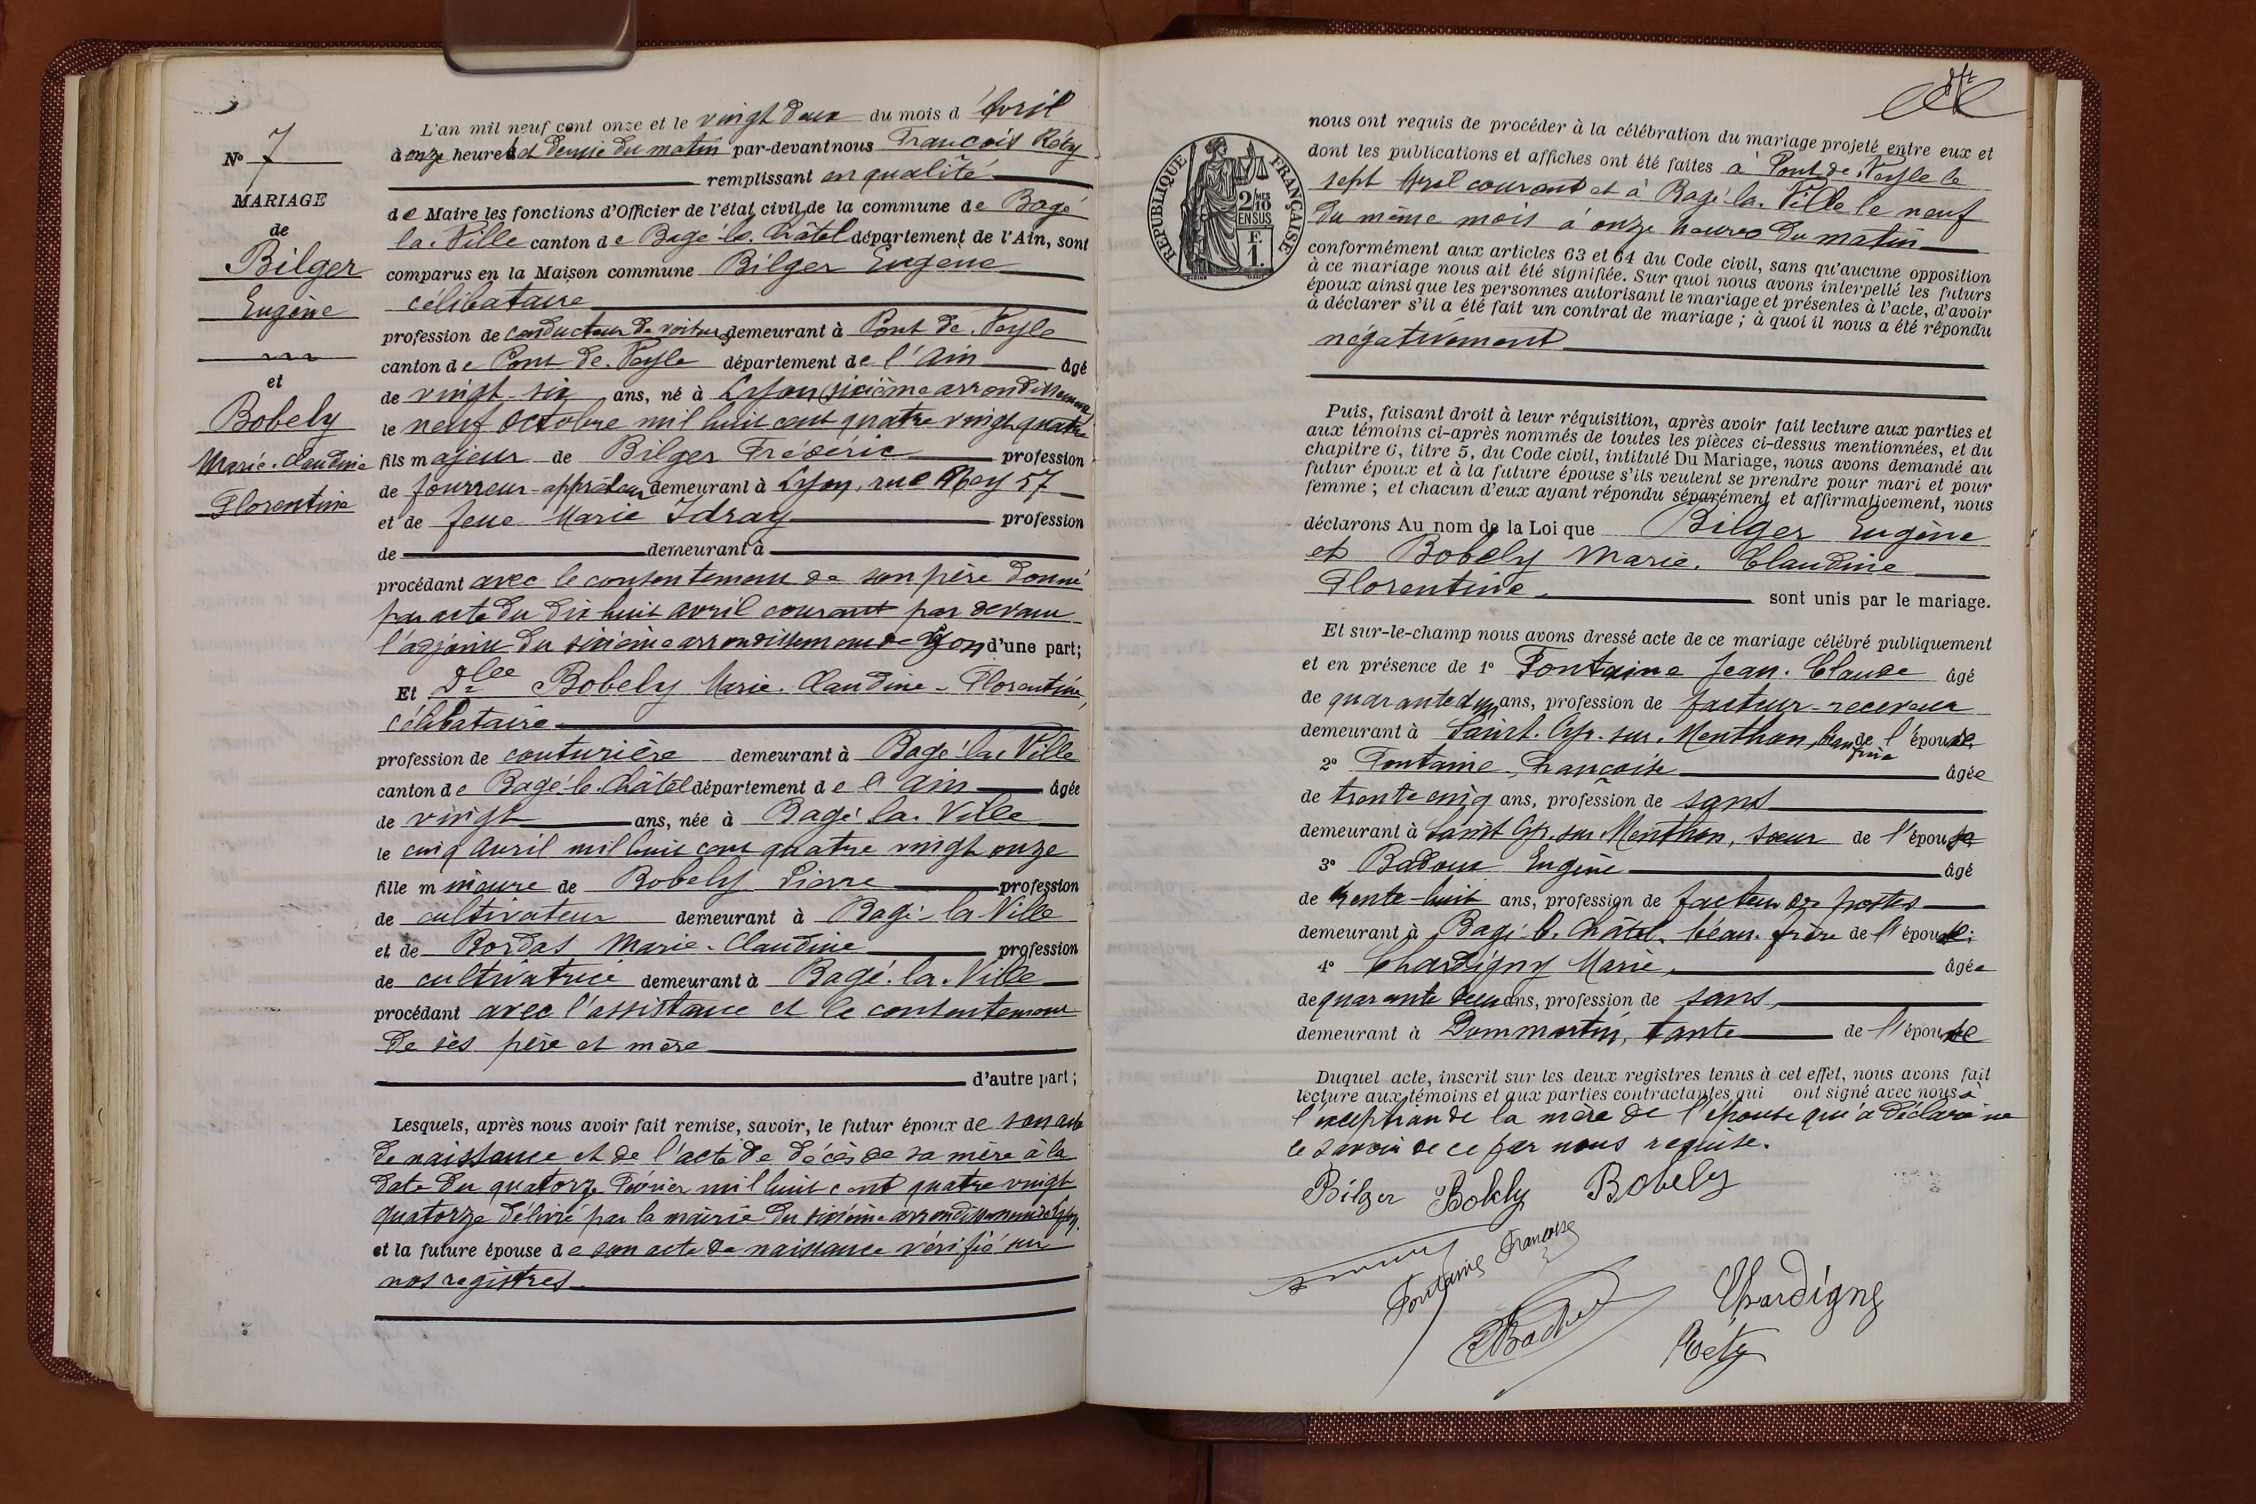 N° 7
MARIAGE
de
Bilger
Eugène
et
Bobely
Marie-Claudine
Florentine
L'an mil neuf cent onze et le vingt deux du mois d'Avril
à onze heures et demie du matin par-devant nous François Réty
remplissant en qualité
de Maire les fonctions d'Officier de l'état civil de la commune de Bagé
la-Ville canton de Bagé-le-Châtel département de l'Ain, sont
comparus en la Maison commune Bilger Eugène
célibataire
profession de conducteur de voitures demeurant à Pont-de-Veyle
canton de Pont-de-Veyle département de l'Ain âgé
de vingt-six ans, né à Lyon (sixième arrondissement)
le neuf Octobre mil huit cent quatre vingt quatre
fils majeur de Bilger Frédéric profession
de fourreur-apprêteur demeurant à Lyon, rue Ney 57
et de feue Marie Idray profession
de demeurant à
procédant avec le consentement de son père donné
par acte du dix huit avril courant par devant
l'adjoint du sixième arrondissement de Lyon d'une part;
Et Dlle Bobely Marie-Claudine-Florentine,
célibataire
profession de couturière demeurant à Bagé-la-Ville
canton de Bagé-le-Châtel département de l'Ain âgée
de vingt ans, née à Bagé-la-Ville
le cinq avril mil huit cent quatre vingt onze
fille mineure de Bobely Pierre profession
de cultivateur demeurant à Bagé-la-Ville
et de Bordas Marie-Claudine profession
de cultivatrice demeurant à Bagé-la-Ville
procédant avec l'assistance et le consentement
de ses père et mère
d'autre part;
Lesquels, après nous avoir fait remise, savoir, le futur époux de son acte
de naissance et de l'acte de décès de sa mère à la
date du quatorze Février mil huit cent quatre vingt
quatorze délivré par la mairie du sixième arrondissement de Lyon.
et la future épouse de son acte de naissance vérifié sur
nos registres
RÉPUBLIQUE FRANÇAISE
2/10 EN SUS
F. 1.
nous ont requis de procéder à la célébration du mariage projeté entre eux et
dont les publications et affiches ont été faites à Pont-de-Veyle le
sept Avril courant et à Bagé-la-Ville le neuf
du même mois à onze heures du matin
conformément aux articles 63 et 64 du Code civil, sans qu'aucune opposition
à ce mariage nous ait été signifiée. Sur quoi nous avons interpellé les futurs
époux ainsi que les personnes autorisant le mariage et présentes à l'acte, d'avoir
à déclarer s'il a été fait un contrat de mariage; à quoi il nous a été répondu
négativement
Puis, faisant droit à leur réquisition, après avoir fait lecture aux parties et
aux témoins ci-après nommés de toutes les pièces ci-dessus mentionnées, et du
chapitre 6, titre 5, du Code civil, intitulé Du Mariage, nous avons demandé au
futur époux et à la future épouse s'ils veulent se prendre pour mari et pour
femme; et chacun d'eux ayant répondu séparément et affirmativement, nous
déclarons Au nom de la Loi que Bilger Eugène
et Bobely Marie-Claudine
Florentine sont unis par le mariage.
Et sur-le-champ nous avons dressé acte de ce mariage célébré publiquement
et en présence de 1° Fontaine Jean-Claude âgé
de quarante deux ans, profession de facteur-receveur
demeurant à Saint-Cyr-sur-Menthon, beau frère de l'épouse,
2° Fontaine Françoise âgée
de trente cinq ans, profession de sans
demeurant à Saint Cyr-sur-Menthon, sœur de l'épouse,
3° Badoux Eugène âgé
de trente-huit ans, profession de facteur des postes
demeurant à Bagé-le-Châtel, beau-frère de l'épouse;
4° Chardigny Marie, âgée
de quarante deux ans, profession de sans,
demeurant à Dommartin, tante de l'épouse
Duquel acte, inscrit sur les deux registres tenus à cet effet, nous avons fait
lecture aux témoins et aux parties contractantes qui ont signé avec nous à
l'exception de la mère de l'épouse qui a déclaré ne
le savoir de ce par nous requise.
Bilger Bobely Bobely
Fontaine Françoise
Chardigny
Réty